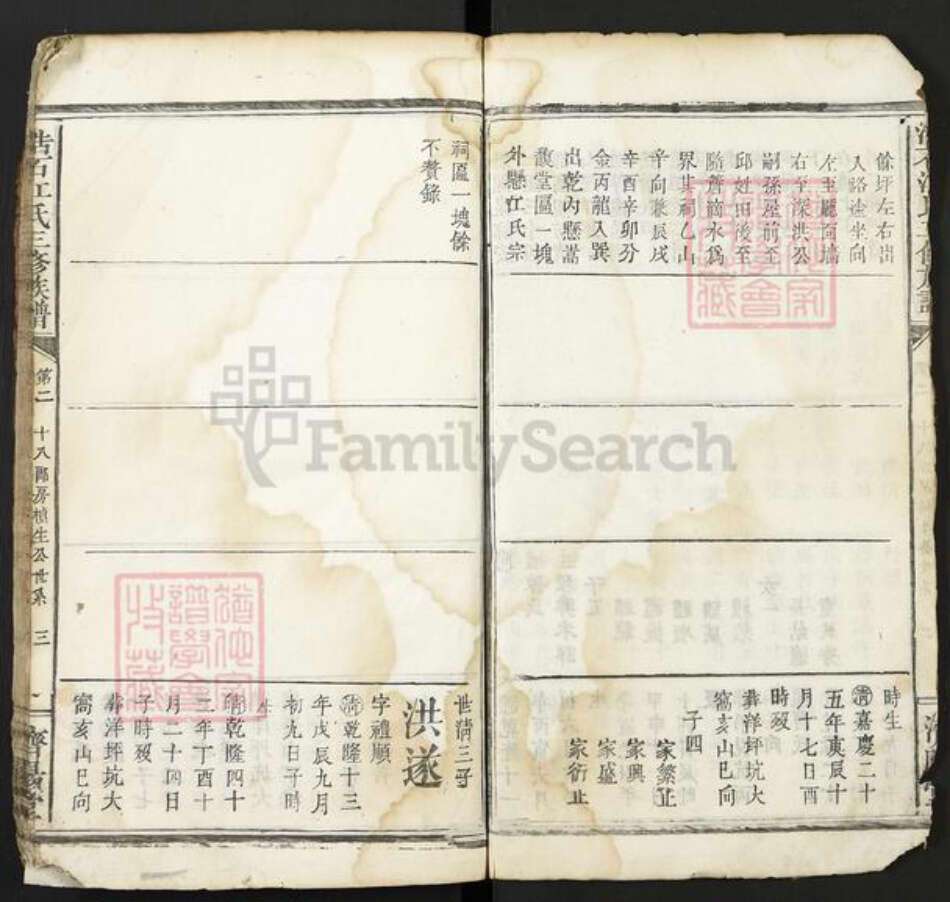 餘坪左右出
入路達坐向
左至廳向墻
右至深洪公
嗣孫屋前至
邱姓田後至
隨簷滴水爲
界其祠乙山
辛向兼辰戌
辛酉辛卯分
金丙龍入巽
出乾內懸嵩
馥堂匾一塊
外懸江氏宗
祠匾一塊餘
不贅錄
時生
清嘉慶二十
五年庚辰十
月十七日酉
時歿
葬洋坪坑大
窩亥山巳向
子四
家蘩止
家興
家盛
家衍止
世清三子
洪遂
字禮順
清乾隆十三
年戊辰九月
初九日子時
清乾隆四十
二年丁酉十
月二十四日
子時歿
葬洋坪坑大
窩亥山巳向
浩石江氏三修族譜
第二
十八郎房植生公世系
三
濟陽堂
FamilySearch